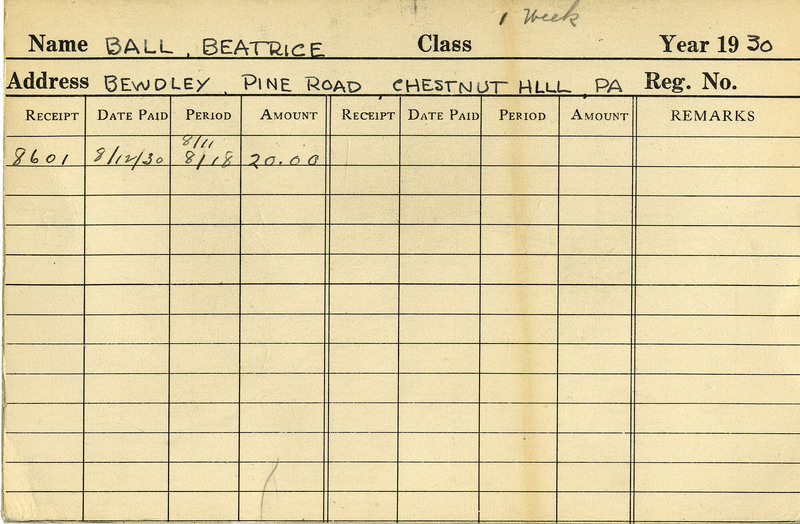 1 Week
Name BALL, BEATRICE Class Year 1930
Address BEWDLEY, PINE ROAD, CHESTNUT HLLL, PA Reg. No.
RECEIPT DATE PAID PERIOD AMOUNT RECEIPT DATE PAID PERIOD AMOUNT REMARKS
8/11
8601 8/12/30 8/18 20.00